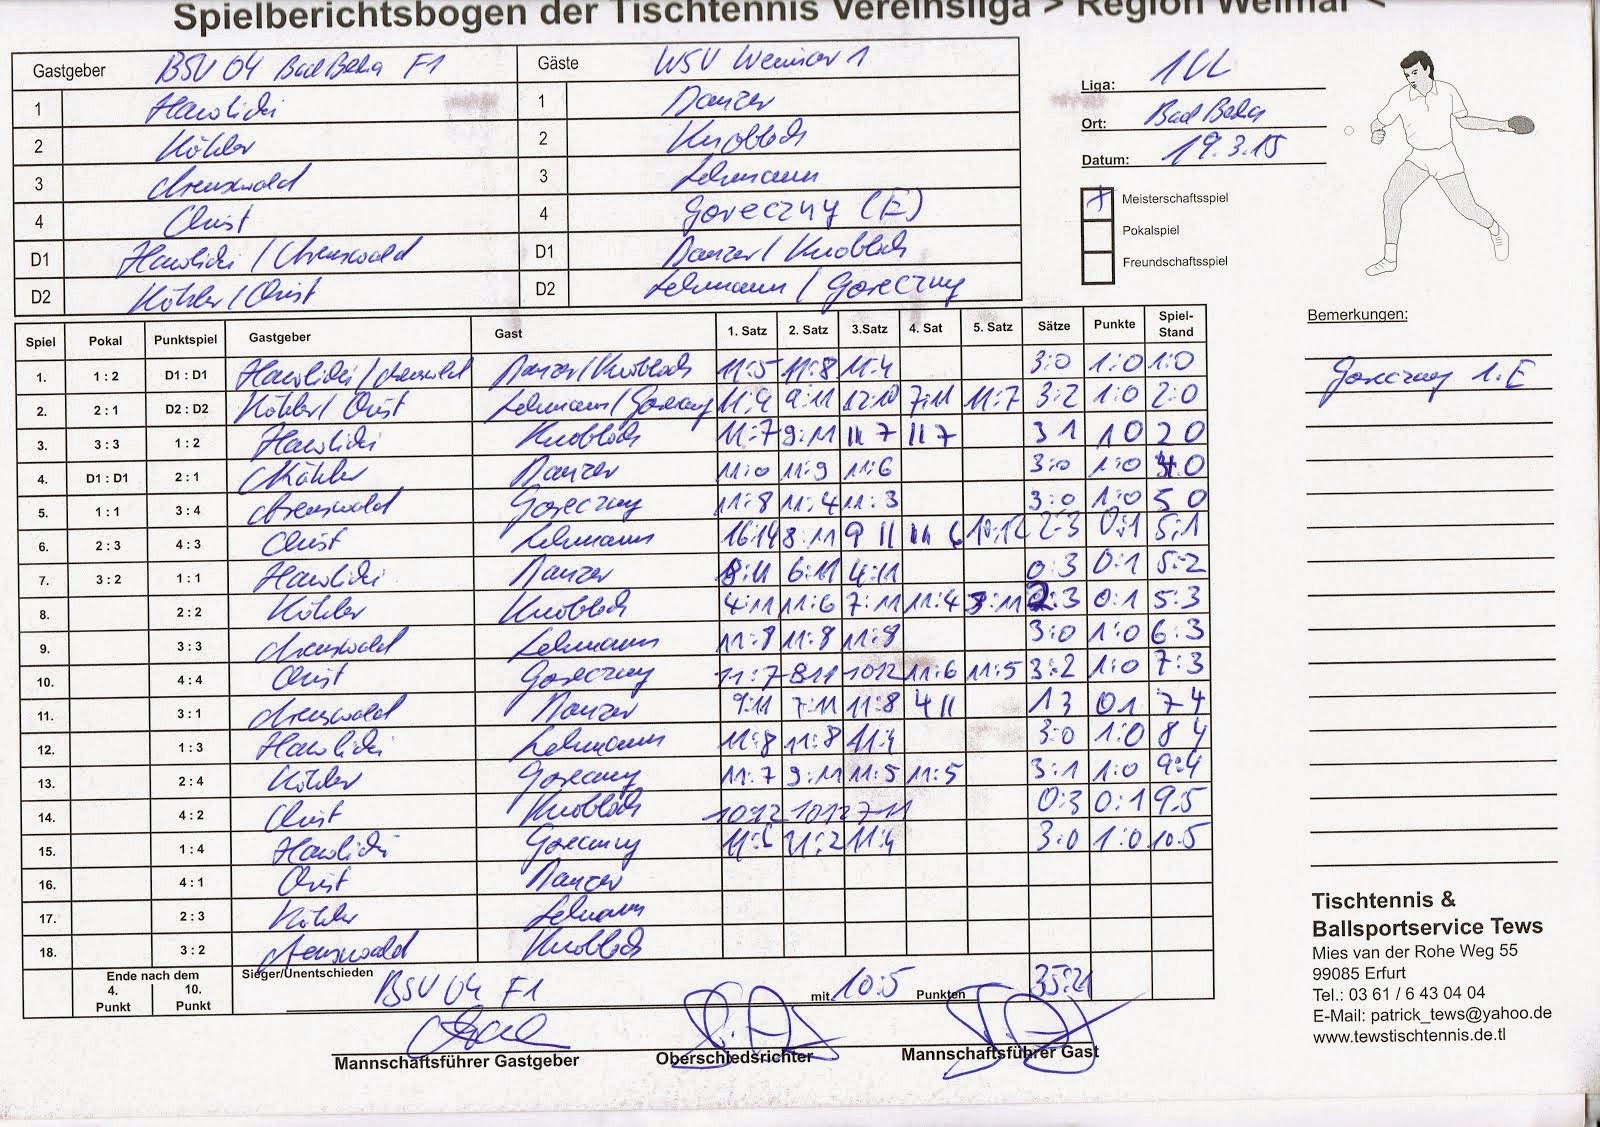 Spielberichtsbogen der Tischtennis Vereinsliga > Region Weimar <
Gastgeber BSV 04 Bad Berka F1 Gäste WSV Weimar 1
1 Hawlicki 1 Danzer
2 Köhler 2 Knobloch
3 Arenswald 3 Lehmann
4 Christ 4 Goreczny (E)
D1 Hawlicki / Arenswald D1 Danzer / Knobloch
D2 Köhler / Christ D2 Lehmann / Goreczny
Liga: 1VL
Ort: Bad Berka
Datum: 19.3.15
x Meisterschaftsspiel
Pokalspiel
Freundschaftsspiel
Spiel Pokal Punktspiel Gastgeber Gast 1. Satz 2. Satz 3.Satz 4. Sat 5. Satz Sätze Punkte Spiel-Stand
1. 1 : 2 D1 : D1 Hawlicki / Arenswald Danzer / Knobloch 11:5 11:8 11:4 3:0 1:0 1:0
2. 2 : 1 D2 : D2 Köhler / Christ Lehmann / Goreczny 11:4 9:11 12:10 7:11 11:7 3:2 1:0 2:0
3. 3 : 3 1 : 2 Hawlicki Knobloch 11:7 9:11 11 7 11 7 3 1 1 0 2 0
4. D1 : D1 2 : 1 Köhler Danzer 11:0 11:9 11:6 3:0 1:0 4 0
5. 1 : 1 3 : 4 Arenswald Goreczny 11:8 11:4 11:3 3:0 1:0 5 0
6. 2 : 3 4 : 3 Christ Lehmann 16:14 8:11 9 11 11 6 10:12 2-3 0:1 5:1
7. 3 : 2 1 : 1 Hawlicki Danzer 8:11 6:11 4:11 0:3 0:1 5:2
8. 2 : 2 Köhler Knobloch 4:11 11:6 7:11 11:4 :11 2:3 0:1 5:3
9. 3 : 3 Arenswald Lehmann 11:8 11:8 11:8 3:0 1:0 6:3
10. 4 : 4 Christ Goreczny 11:7 8 11 10 12 11:6 11:5 3:2 1:0 7:3
11. 3 : 1 Arenswald Danzer 9:11 7:11 11:8 4 11 1 3 0 1 7 4
12. 1 : 3 Hawlicki Lehmann 11:8 11:8 11:4 3:0 1:0 8 4
13. 2 : 4 Köhler Goreczny 11:7 9:11 11:5 11:5 3:1 1:0 9:4
14. 4 : 2 Christ Knobloch 10:12 10 12 7-11 0:3 0:1 9:5
15. 1 : 4 Hawlicki Goreczny 11:6 11:2 11:4 3:0 1:0 10:5
16. 4 : 1 Christ Danzer
17. 2 : 3 Köhler Lehmann
18. 3 : 2 Arenswald Knobloch
Ende nach dem
4. Punkt 10. Punkt
Sieger/Unentschieden BSV 04 F1 mit 10:5 Punkten 35:21
Mannschaftsführer Gastgeber Oberschiedsrichter Mannschaftsführer Gast
Bemerkungen:
Goreczny 1.E
Tischtennis &
Ballsportservice Tews
Mies van der Rohe Weg 55
99085 Erfurt
Tel.: 03 61 / 6 43 04 04
E-Mail: patrick_tews@yahoo.de
www.tewstischtennis.de.tl